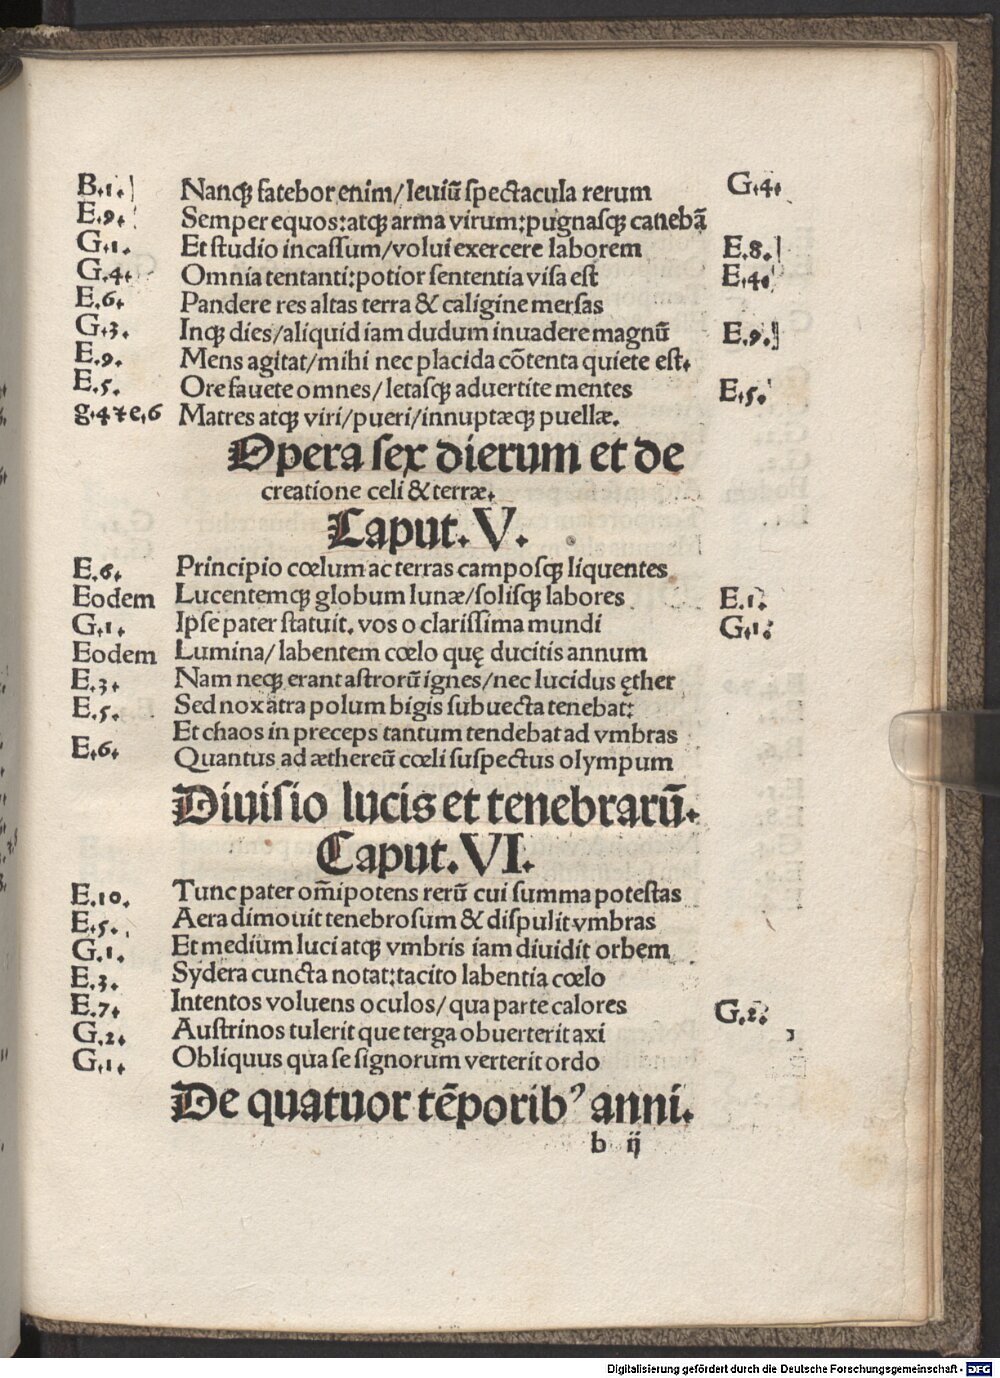 B.1. Nanqꝫ fatebor enim/leuiū spectacula rerum G.4.
E.9. Semper equos:atqꝫ arma virum:pugnasqꝫ canebā
G.1. Et studio incassum/volui exercere laborem E.8.
G.4. Omnia tentanti:potior sententia visa est E.4.
E.6. Pandere res altas terra & caligine mersas
G.3. Inqꝫ dies/aliquid iam dudum inuadere magnū E.9.
E.9. Mens agitat/mihi nec placida cōtenta quiete est.
E.5. Ore fauete omnes/letasqꝫ aduertite mentes E.5.
g.4 ⁊ e.6 Matres atqꝫ viri/pueri/innuptæqꝫ puellæ.
Opera sex dierum et de
creatione celi & terræ.
Caput. V.
E.6. Principio cœlum ac terras camposqꝫ liquentes
Eodem Lucentemqꝫ globum lunæ/solisqꝫ labores E.1.
G.1. Ipse pater statuit. vos o clarissima mundi G.1.
Eodem Lumina/labentem cœlo quę ducitis annum
E.3. Nam neqꝫ erant astrorū ignes/nec lucidus ęther
E.5. Sed nox atra polum bigis subuecta tenebat:
Et chaos in preceps tantum tendebat ad vmbras
E.6. Quantus ad æthereū cœli suspectus olympum
Diuisio lucis et tenebrarū.
Caput. VI.
E.10. Tunc pater om̄ipotens rerū cui summa potestas
E.5. Aera dimouit tenebrosum & dispulit vmbras
G.1. Et medium luci atqꝫ vmbris iam diuidit orbem
E.3. Sydera cuncta notat:tacito labentia cœlo
E.7. Intentos voluens oculos/qua parte calores G.2.
G.2. Austrinos tulerit que terga obuerterit axi
G.1. Obliquus qua se signorum verterit ordo
De quatuor tēporibꝰ anni.
b ij
Digitalisierung gefördert durch die Deutsche Forschungsgemeinschaft - DFG